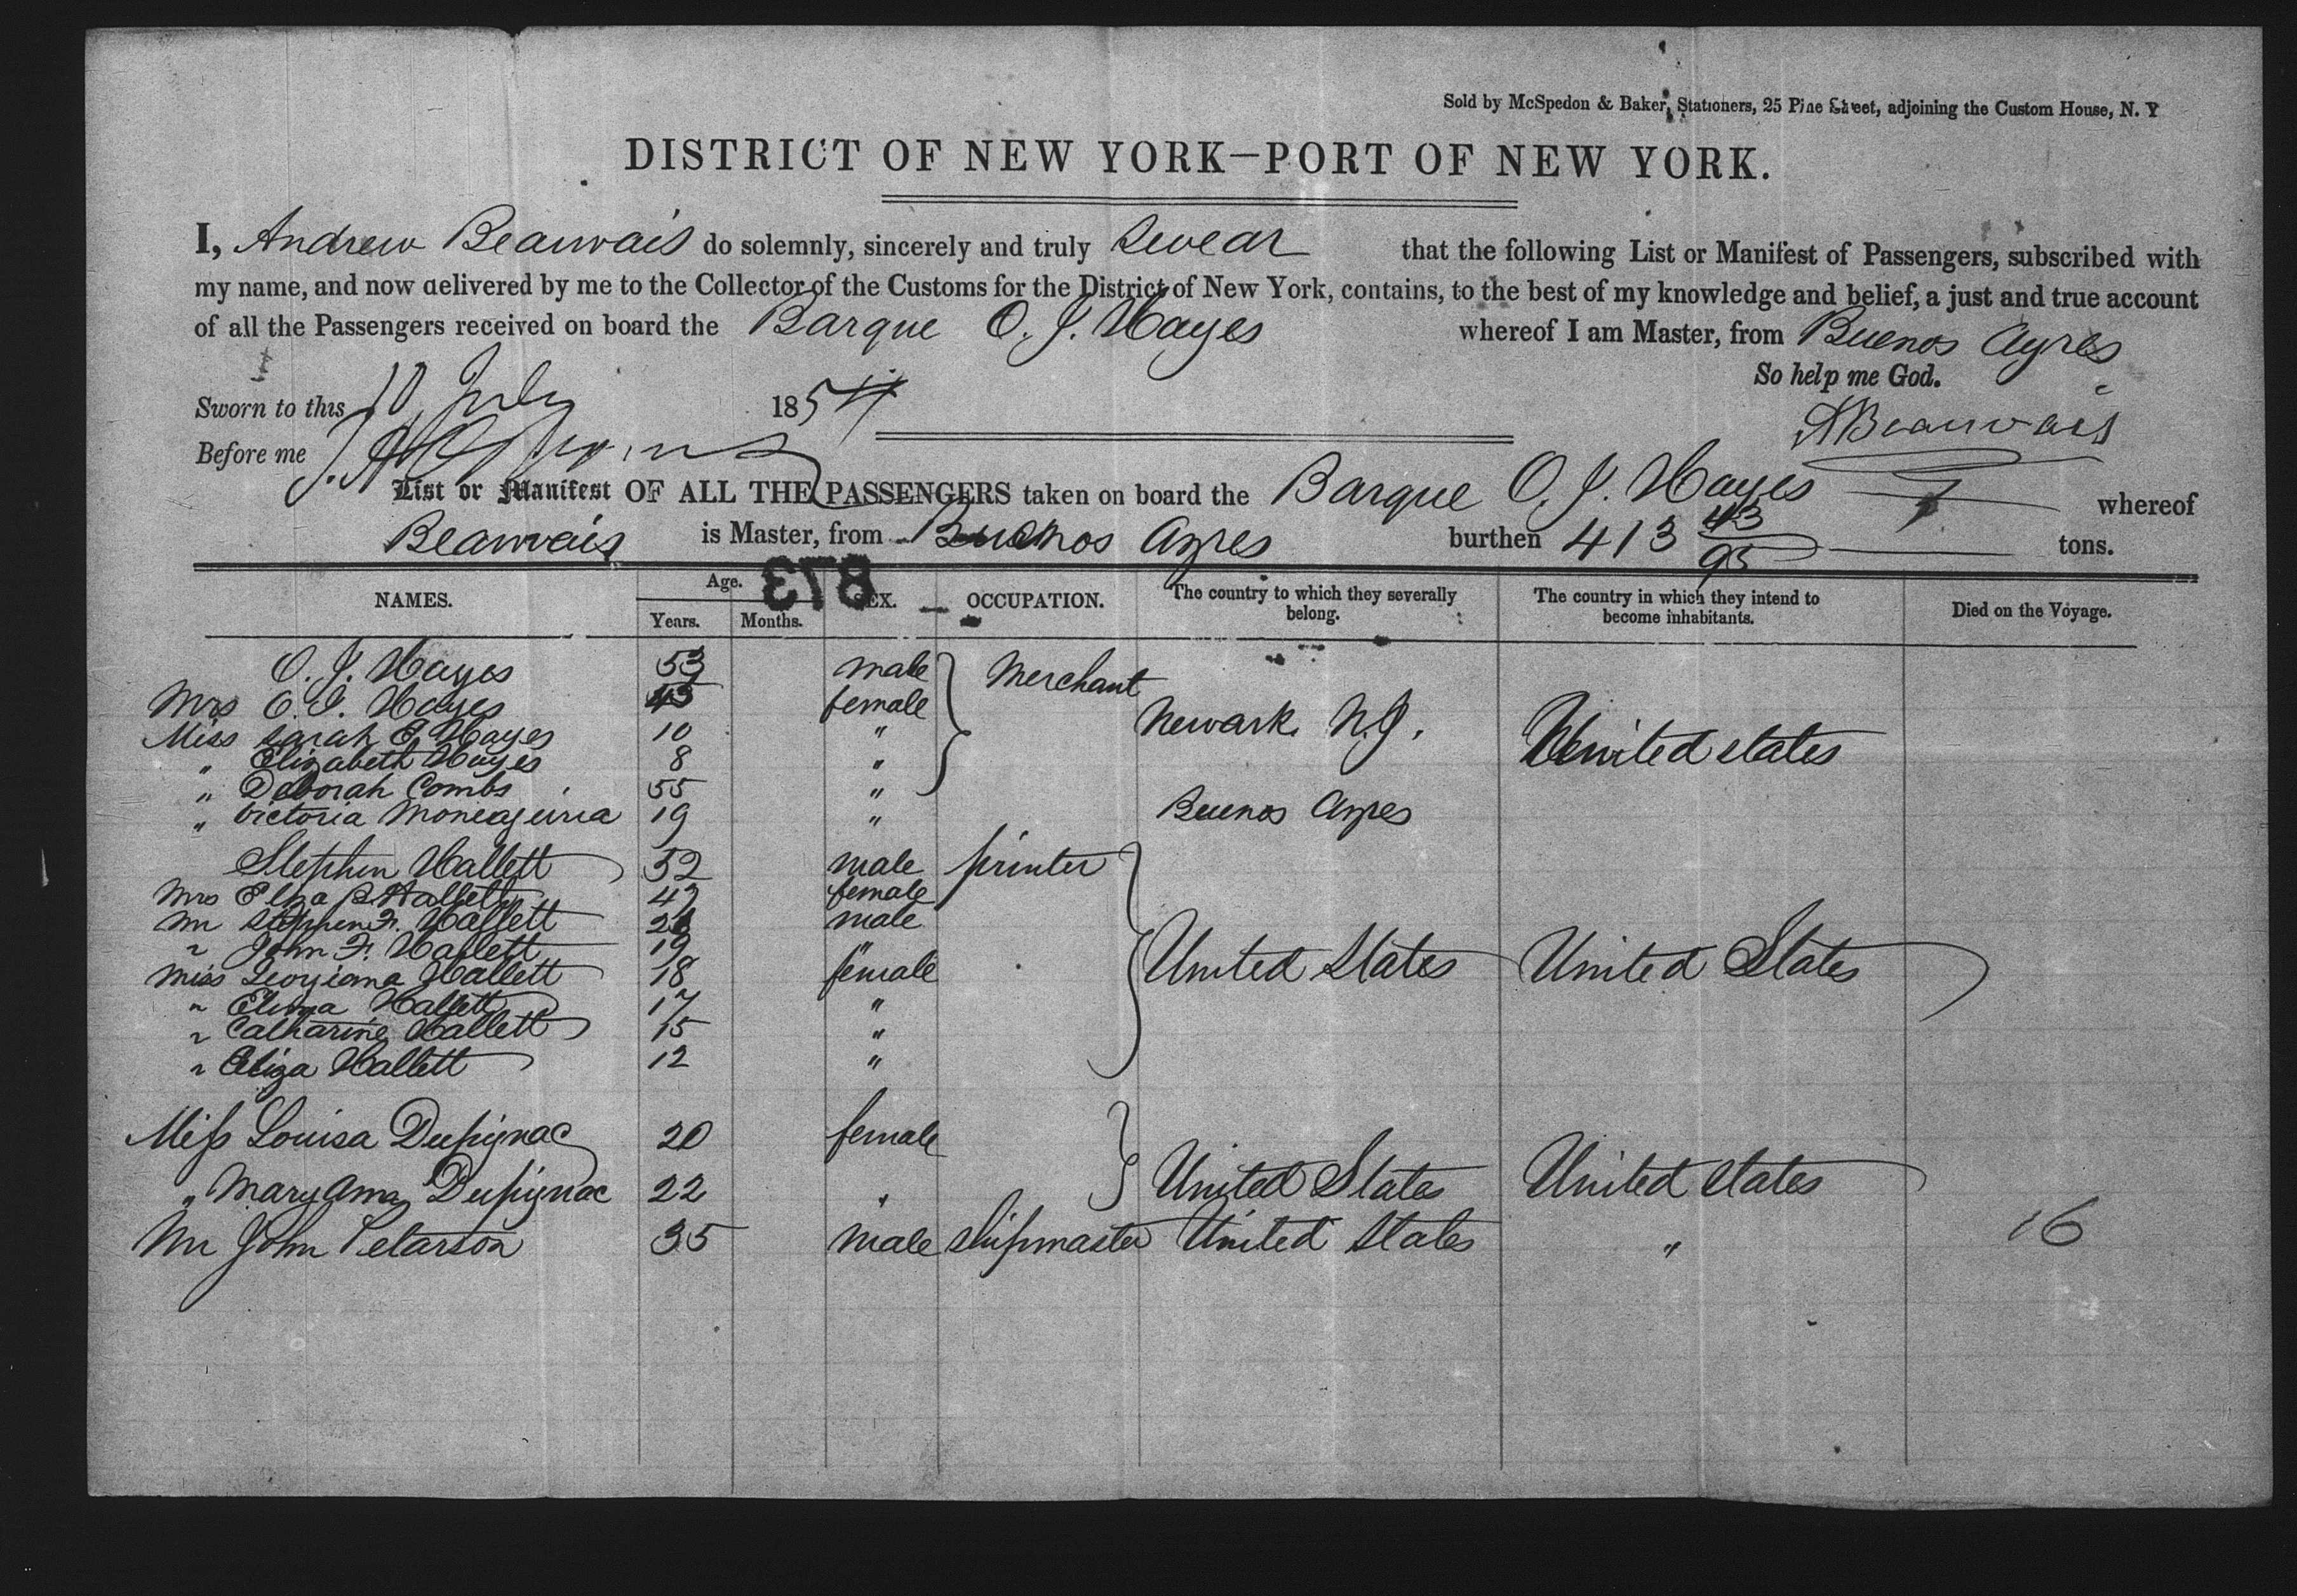 Sold by McSpedon & Baker, Stationers, 25 Pine Street, adjoining the Custom House, N. Y
DISTRICT OF NEW YORK—PORT OF NEW YORK.
I, Andrew Beauvais do solemnly, sincerely and truly swear that the following List or Manifest of Passengers, subscribed with
my name, and now delivered by me to the Collector of the Customs for the District of New York, contains, to the best of my knowledge and belief, a just and true account
of all the Passengers received on board the Barque O. J. Hayes whereof I am Master, from Buenos Ayres
So help me God.
Sworn to this 10 July 1854
A Beauvais
Before me
List or Manifest OF ALL THE PASSENGERS taken on board the Barque O. J. Hayes whereof
Beauvais is Master, from Buenos Ayres burthen 413 43/95 tons.
878
NAMES. Age. Years. Months. SEX. OCCUPATION. The country to which they severally belong. The country in which they intend to become inhabitants. Died on the Voyage.
O. J. Hayes 53 male Merchant
Mrs O. J. Hayes 43 female Newark N.J.
Miss Sarah E. Hayes 10 " United States
" Elizabeth Hayes 8 "
" Deborah Combs 55 "
" Victoria 19 " Buenos Ayres
Stephen Hallett 52 male printer
Mrs Eliza B Hallett 47 female
Mr Stephen F. Hallett male
" John F. Hallett 19 "
Miss Georgiana Hallett 18 female United States United States
" Hallett 17 "
" Catharine Hallett 15 "
" Eliza Hallett 12 "
Miss Louisa Dupignac 20 female
" Mary Ama Dupignac 22 " United States United States
Mr John Petarson 35 male shipmaster United States "
16